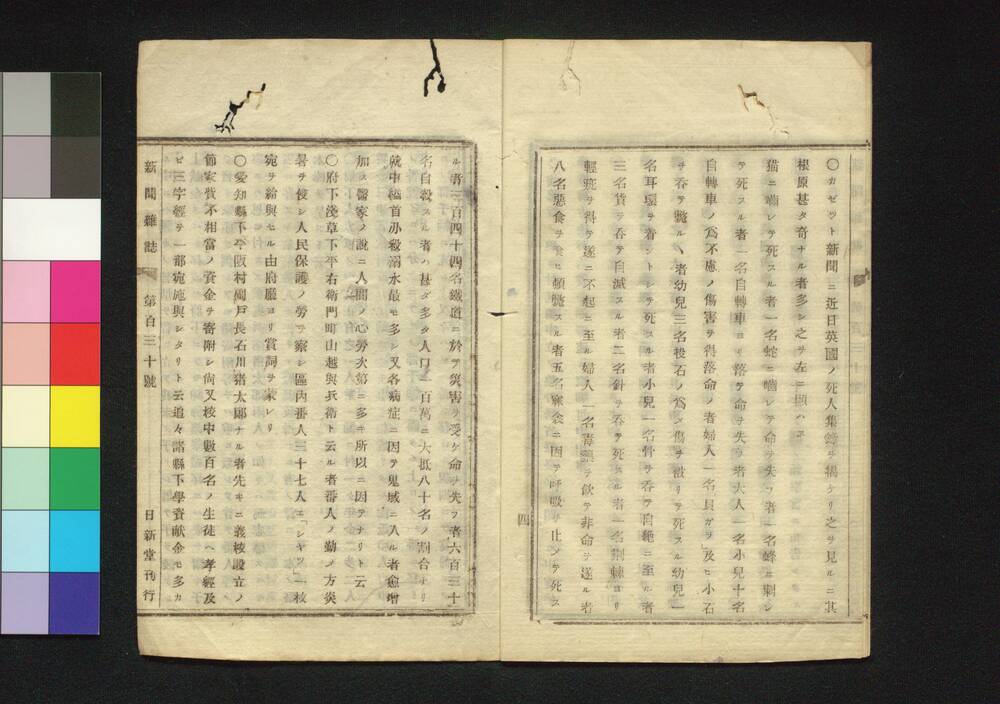 〇ガゼット新聞ニ近日英國ノ死人集錄ヲ揭ケリ之ヲ見ルニ其
根原甚タ奇ナル者多シ之ヲ左ニ
猫ニ嚙レヲ死スル者一名蛇ニ嚙レテ命ヲ失フ者一名蜂ニ刺レ
テ死スル者一名自轉車ヨリ落テ命ヲ失フ者大人一名小兒十名
自轉車ノ爲不慮ノ傷害ヲ得落命ノ者婦人一名貝ガラ及ヒ小石
ヲ呑テ斃ルヽ者幼兒三名投石ノ爲メ傷ヲ被リテ死スル幼兒一
名耳環ヲ着ントシテ死スル者小兒一名骨ヲ呑テ自絕ニ至ル者
三名貨ヲ呑テ自滅スル者二名針ヲ呑テ死スル者一名荊棘ヨリ
輕疵ヲ得テ遂ニ不起ニ至ル婦人一名毒藥ヲ飮テ非命ヲ遂ル者
八名惡食ヲ食ヒ頓斃スル者五名寐衾ニ因テ呼吸ヲ止メテ死ス
四
ル者三百四十四名鐵道ニ於テ災害ヲ受ケ命ヲ失フ者六百三十
名自殺スル者ハ甚ダ多タ人口一百萬ニ大抵八十名ノ割合ナリ
就中縊首刅殺溺水最モ多シ又各病症ニ因テ鬼域ニ入ル者愈增
加ス醫家ノ說ニ人間ノ心勞次第ニ多キ所以ニ因テナリト云
〇府下淺草下平右衛門町山越與兵衛ト云ル者番人ノ勤メ方炎
暑ヲ侵シ人民保護ノ勞ヲ察シ區內番人三十七人ニ「シヤツ」一枚
宛ヲ給與セル由府廳ヨリ賞詞ヲ蒙レリ
〇愛知縣下平坂村副戶長石川猪太郎ナル者先キニ義校設立ノ
節家貲不相當ノ資金ヲ寄附シ尙又校中數百名ノ生徒ヘ孝經及
ビ三字經ヲ一部宛施與シタリト云追々諸縣下學資献金モ多カ
新聞雜誌 第百三十號 日新堂刊行